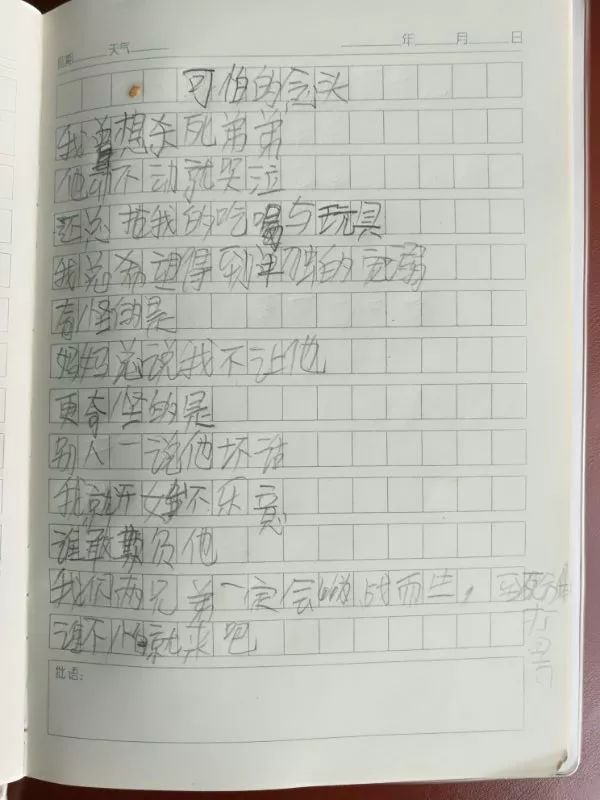 日期 天气 年 月 日
可怕的念头
我曾想杀死弟弟
他动不动就哭泣
还总抢我的吃喝与玩具
我总希望得到单独的宠溺
奇怪的是
妈妈总说我不让他
更奇怪的是
别人一说他坏话
我就开始不乐意
谁敢欺负他
我们两兄弟一定会哟战而上,
谁不怕就来吧
批语: